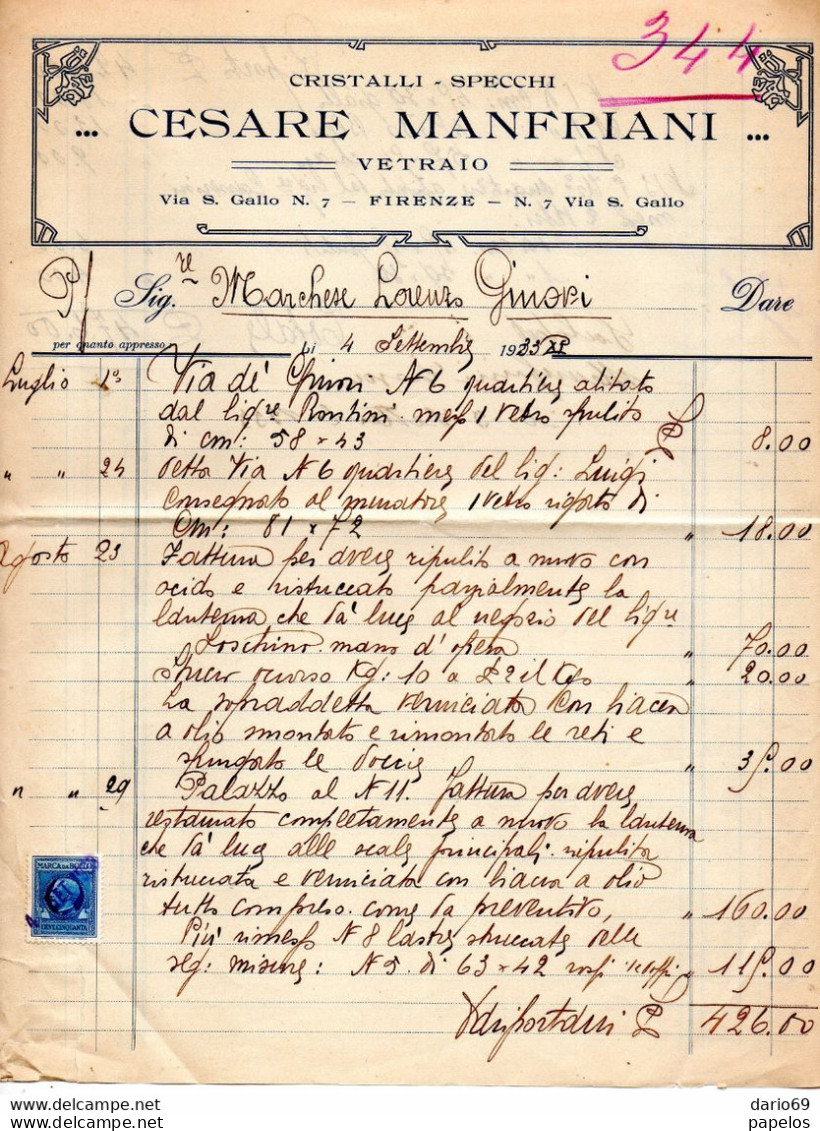 344
CRISTALLI - SPECCHI
... CESARE MANFRIANI ...
VETRAIO
Via S. Gallo N. 7 — FIRENZE — N. 7 Via S. Gallo
P/ Sig.re Marchese Lorenzo Ginori Dare
per quanto appresso Li 4 Settembre 1933 XI
Luglio 1° Via de' Ginori N 6 quartiere abitato
dal Sigre Rontini messo 1 vetro spulito
di cm: 58 × 43 £ 8.00
" " 24 detta Via N 6 quartiere del Sig: Luigi
consegnato al muratore 1 vetro rigato di
Cm: 81 × 72 " 18.00
Agosto 23 Fattura per avere ripulito a nuovo con
acido e ristuccato parzialmente la
lanterna che dà luce al negozio del Sigre
Loschino mano d'opera " 70.00
Stucco occorso Kg: 10 a £ 2 il Kgo " 20.00
La sopraddetta verniciata con biacca
a olio smontato e rimontato le reti e
spurgato le doccie " 35.00
" " 29 Palazzo al N 11. Fattura per avere
restaurato completamente a nuovo la lanterna
che dà luce alle scale principali ripulita
ristuccata e verniciata con biacca a olio
tutto compreso come da preventivo, " 160.00
Più rimesso N 8 lastre stuccate delle
seg: misure: N 5. di 63 × 42 " 115.00
Da riportarsi £ 426.00
MARCA DA BOLLO
CENT. CINQUANTA
Delcampe.net
dario69
papelos